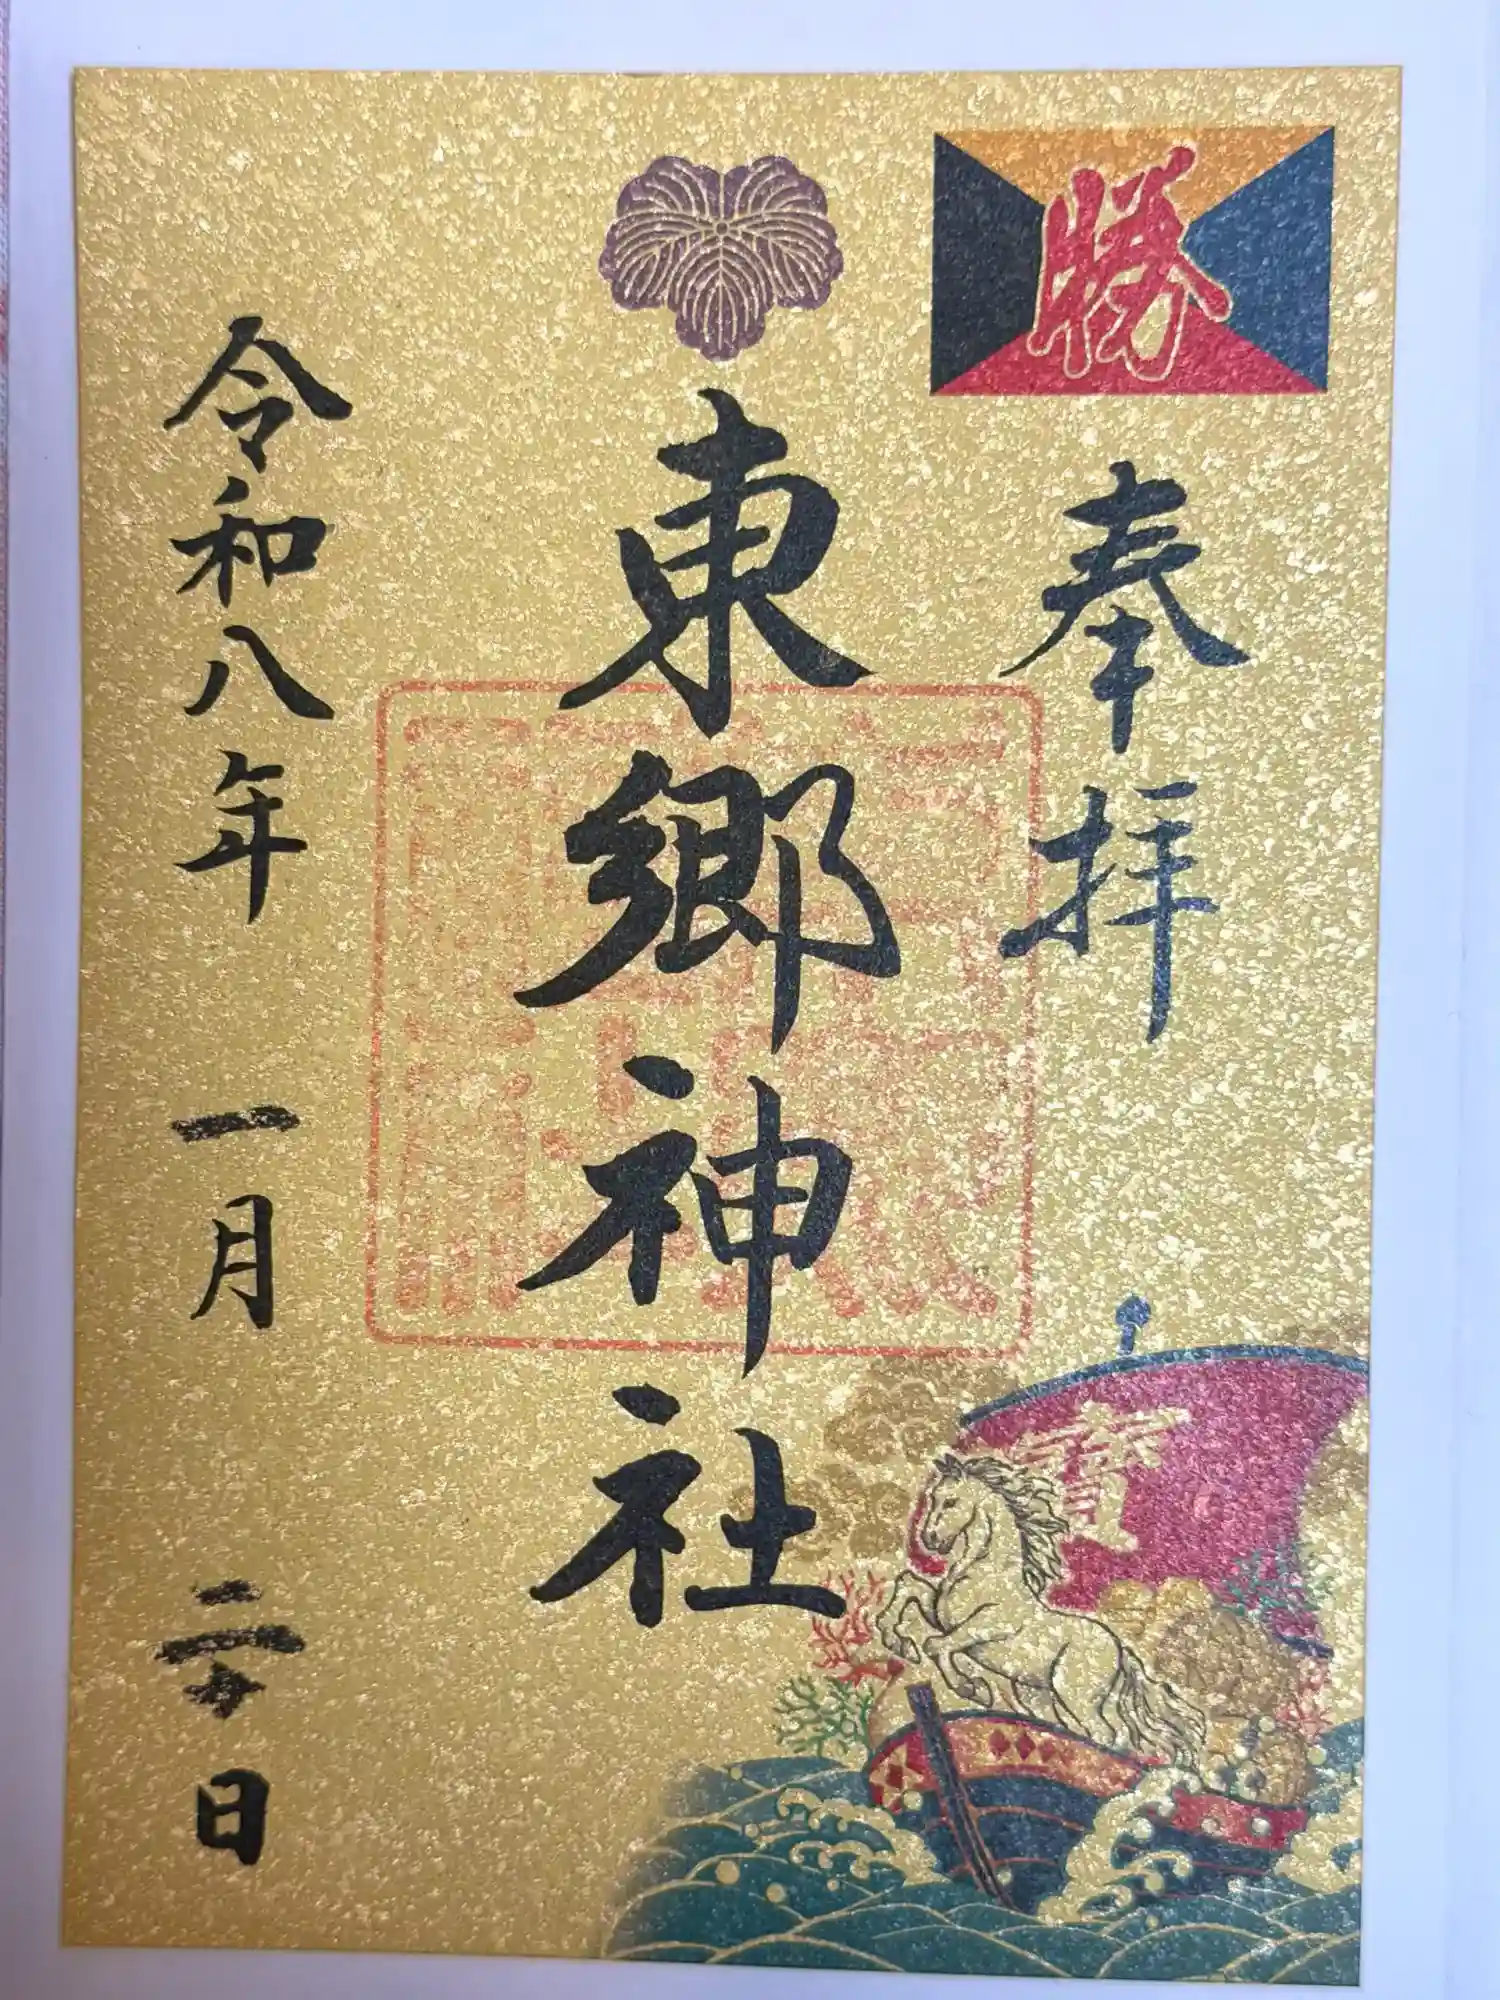 勝
奉拝
東郷神社
令和八年 一月 日